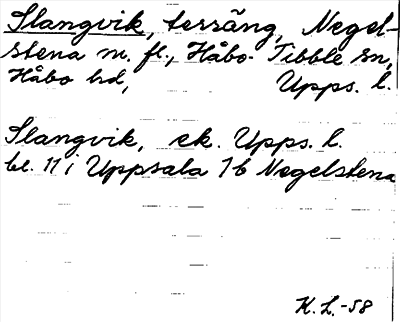 Slangvik, terräng, Negel-
stena m. fl., Håbo-Tibble sn,
Håbo hd, Upps. l.
Slangvik, ek. Upps. l.
bl. 11 i Uppsala 7 b Negelstena
K. L. -58